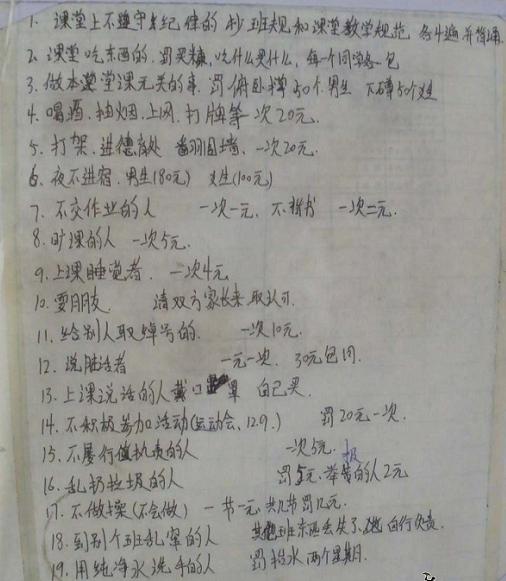 1. 课堂上不遵守纪律的 抄班规和课堂教学规范 各4遍并背诵
2. 课堂吃东西的. 罚买糖, 吃什么买什么, 每个同学各一包
3. 做本堂课无关的事. 罚俯卧撑50个男生 下蹲50个女生
4. 喝酒. 抽烟. 上网. 打牌等一次20元.
5. 打架. 进德育处 翻围墙. 一次20元.
6. 夜不进宿. 男生(180元) 女生(100元)
7. 不交作业的人 一次一元. 不 一次二元.
8. 旷课的人 一次5元.
9. 上课睡觉者. 一次4元
10. 耍朋友. 请双方家长来取认可.
11. 给别人取绰号的. 一次10元.
12. 说脏话者 一元一次. 30元包月.
13. 上课说话的人戴口罩 自己买.
14. 不积极参加活动(运动会、12.9.) 罚20元一次.
15. 不履行值执责的人 一次5元.
16. 乱扔垃圾的人 罚5元. 举报的人2元
17. 不做操(不会做) 一节一元. 共几节罚几元.
18. 到别个班乱窜的人 其班东西丢失了. 自行负责.
19. 用纯净水洗手的人 罚抬水两个星期.